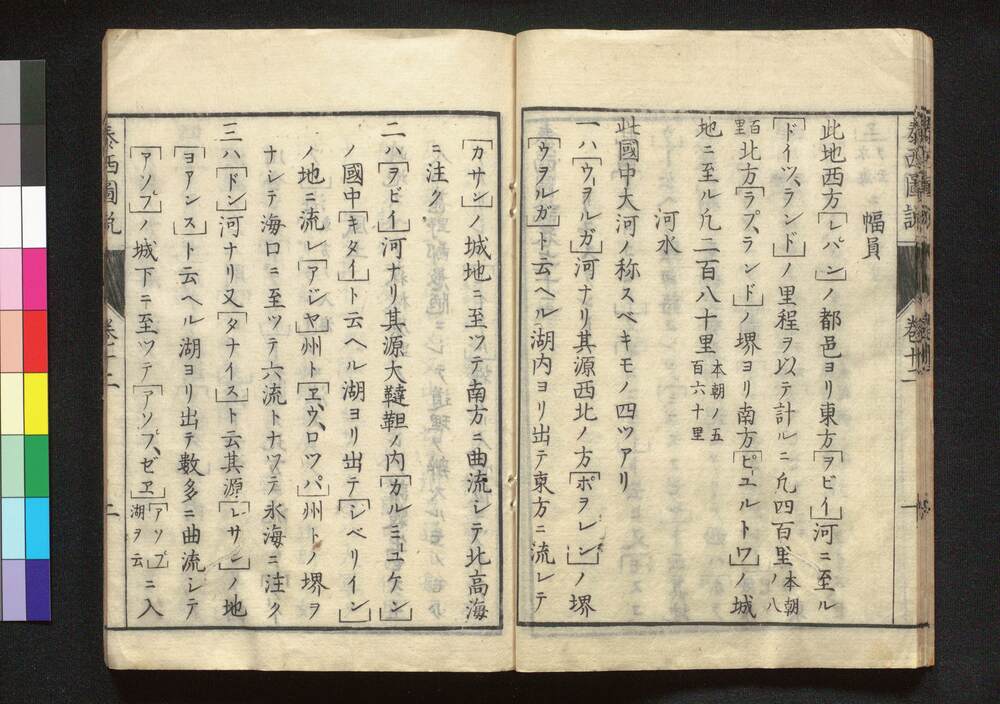 幅員
此地西方「レパン」ノ都邑ヨリ東方「ヲビイ」河ニ至ル
「ドイツ、ランド」ノ里程ヲ以テ計ルニ凡四百里本朝ノ八
百里北方「ラプ、ランド」ノ堺ヨリ南方「ピュルトワ」ノ城
地ニ至ル凡二百八十里本朝ノ五百六十里
河水
此國中大河ノ称スベキモノ四ツアリ
一ハ「ウヲルガ」河ナリ其源西北ノ方「ポヲレン」ノ堺
「ウヲルガ」ト云ヘル湖内ヨリ出テ東方ニ流レテ
「カサン」ノ城地ニ至ツテ南方ニ曲流シテ北高海
ニ注ク
二ハ「ヲビイ」河ナリ其源大韃靼ノ内「カルミュケン」
ノ國中「キタイ」ト云ヘル湖ヨリ出テ「シベリイン」
ノ地ニ流レ「アジヤ」州ト「ヱウロツパ」州トノ堺ヲ
ナシテ海口ニ至ツテ六流トナツテ氷海ニ注ク
三ハ「ドン」河ナリ又「タナイス」ト云其源「レサン」ノ地
「ヨアンス」ト云ヘル湖ヨリ出テ數多ニ曲流シテ
「アソプ」ノ城下ニ至ツテ「アソプ、ゼヱ」「アソプ」湖ヲ云ニ入
泰西圖説
卷十二
二